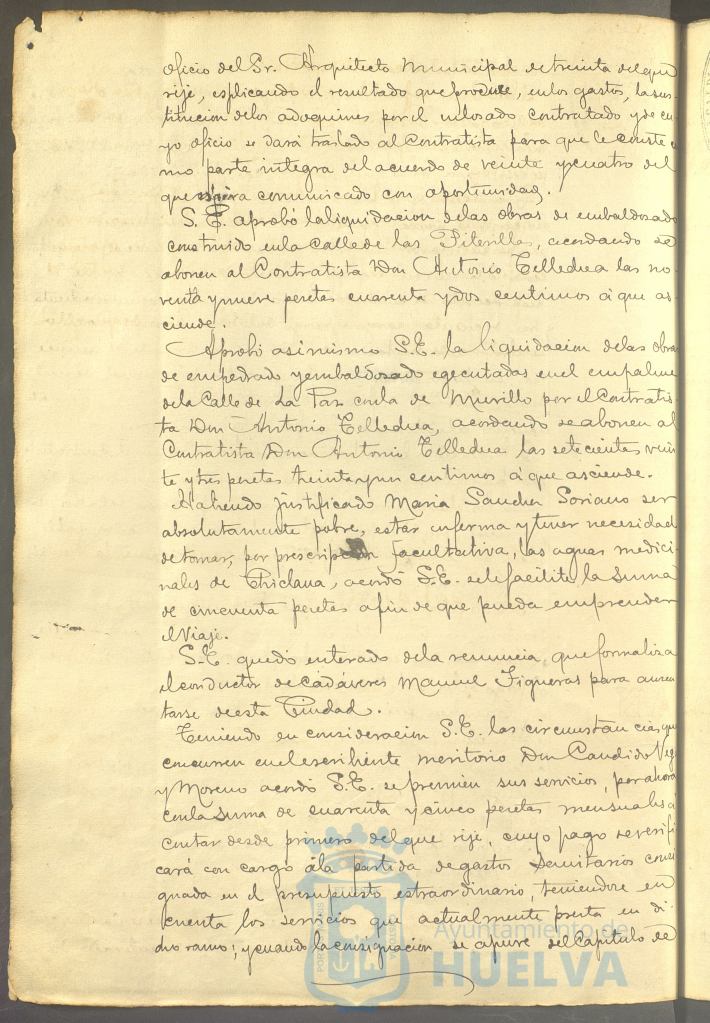 oficio del Sr. Arquitecto Municipal de treinta del que
rije, esplicando el resultado que produce, en los gastos, la sus-
titucion de los adoquines por el enlosado contratado y de cu-
yo oficio se dará traslado al Contratista para que le conste co
mo parte integra del acuerdo de veinte y cuatro del
que será comunicado con oportunidad.
S. E. aprobó la liquidacion de las obras de embaldosado
construido en la Calle de las Piterillas, acordando se
abonen al Contratista Don Antonio Telledrea las no-
venta y nueve pesetas cuarenta y dos centimos á que as-
ciende.
Aprobó asimismo S.E. la liquidacion de las obras
de empedrado y embaldosado egecutadas en el empalme
de la Calle de La Paz con la de Murillo por el Contratis-
ta Don Antonio Telledrea, acordando se abonen al
Contratista Don Antonio Telledrea las setecientas vein
te y tres pesetas treinta y un centimos á que asciende.
Habiendo justificado Maria Sanchez Soriano ser
absolutamente pobre, estar enferma y tener necesidad
de tomar, por prescripcion facultativa, las aguas medici-
nales de Chiclana, acordó S.E. se le facilite la suma
de cincuenta pesetas a fin de que pueda emprender
el Viaje.
S.E. quedó enterado de la renuncia que formaliza
el conductor de Cadáveres Manuel Figueras para ausen
tarse de esta Ciudad.
Teniendo en consideracion S.E. las circunstancias que
concurren en el escribiente meritorio Don Candido Veg
y Moreno acordó S.E. se premien sus servicios, por ahora
con la suma de cuarenta y cinco pesetas mensuales á
contar desde primero del que rije, cuyo pago se verifi
cará con cargo á la partida de gastos Sanitarios consi
gnada en el presupuesto extraordinario, teniendose en
cuenta los servicios que actualmente presta en di-
cho ramo; y cuando la consignacion se apure del Capitulo de
Ayuntamiento de
HUELVA